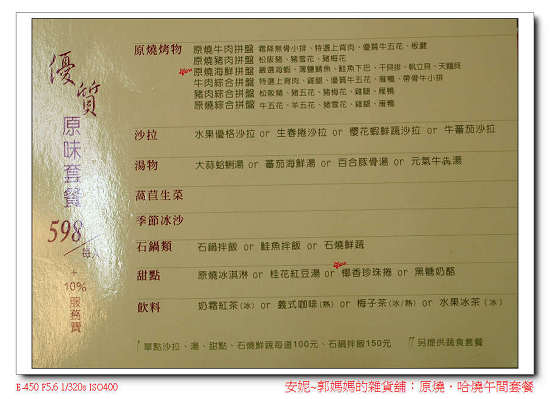 優質
原味套餐
598/每
+
10%
服務費
原燒烤物 原燒牛肉拼盤 霜降無骨小排、特選上背肉、優質牛五花、板腱
原燒豬肉拼盤 松阪豬、豬雪花、豬梅花
New 原燒海鮮拼盤 嚴選海蝦、薄鹽鯖魚、鮭魚下巴、干貝排、帆立貝、天麵貝
牛肉綜合拼盤 特選上背肉、雞腿、優質牛五花、雁鴨、帶骨牛小排
豬肉綜合拼盤 松阪豬、豬五花、豬梅花、雞腿、雁鴨
原燒綜合拼盤 牛五花、羊五花、豬雪花、雞腿、雁鴨
沙拉 水果優格沙拉 or 生春捲沙拉 or 櫻花蝦鮮蔬沙拉 or 牛蕃茄沙拉
湯物 大蒜蛤蜊湯 or 蕃茄海鮮湯 or 百合豚骨湯 or 元氣牛犇湯
萵苣生菜
季節冰沙
石鍋類 石鍋拌飯 or 鮭魚拌飯 or 石燒鮮蔬
甜點 原燒冰淇淋 or 桂花紅豆湯 or New 椰香珍珠捲 or 黑糖奶酪
飲料 奶霜紅茶(冰) or 義式咖啡(熱) or 梅子茶(冰/熱) or 水果冰茶(冰)
單點沙拉、湯、甜點、石燒鮮蔬每道100元、石鍋拌飯150元 另提供蔬食套餐
E-450 F5.6 1/320s ISO400
安妮~郭媽媽的雜貨舖：原燒‧哈燒午間套餐